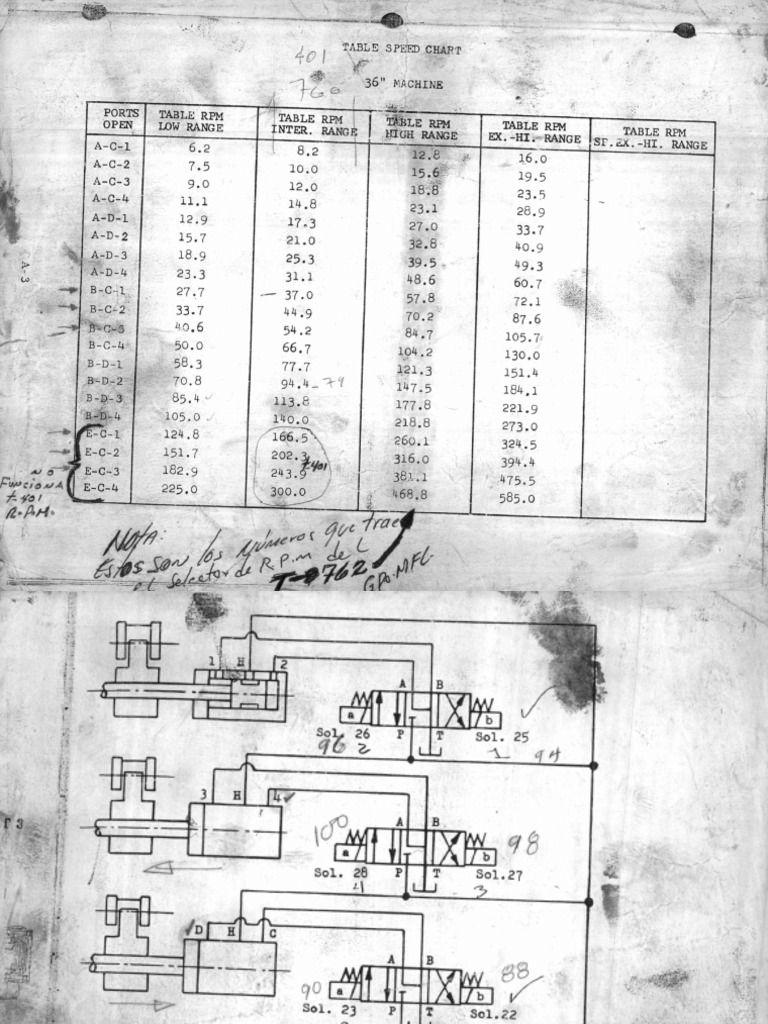 TABLE SPEED CHART
401
36" MACHINE
PORTS OPEN TABLE RPM LOW RANGE TABLE RPM INTER. RANGE TABLE RPM HIGH RANGE TABLE RPM EX.-HI. RANGE TABLE RPM SP.EX.-HI. RANGE
A-C-1 6.2 8.2 12.8 16.0
A-C-2 7.5 10.0 15.6 19.5
A-C-3 9.0 12.0 18.8 23.5
A-C-4 11.1 14.8 23.1 28.9
A-D-1 12.9 17.3 27.0 33.7
A-D-2 15.7 21.0 32.8 40.9
A-D-3 18.9 25.3 39.5 49.3
A-D-4 23.3 31.1 48.6 60.7
B-C-1 27.7 — 37.0 57.8 72.1
B-C-2 33.7 44.9 70.2 87.6
B-C-3 40.6 54.2 84.7 105.7
B-C-4 50.0 66.7 104.2 130.0
B-D-1 58.3 77.7 121.3 151.4
B-D-2 70.8 94.4 - 79 147.5 184.1
B-D-3 85.4 113.8 177.8 221.9
B-D-4 105.0 140.0 218.8 273.0
E-C-1 124.8 166.5 260.1 324.5
E-C-2 151.7 202.3 316.0 394.4
E-C-3 182.9 243.9 381.1 475.5
E-C-4 225.0 300.0 468.8 585.0
t-401
A-3
NO
FUNCIONA
t-401
R.P.M.
NOTA:
ESTOS SON los Números que trae
el Selector de R.P.M de L
T-0762
1 H 2
A B
a b
Sol. 26 P T Sol. 25
96 2 1 94
3 H 4
A B
100 98
a b
Sol. 28 P T Sol.27
4 3
D H C
A B
88
90 a b
Sol. 23 P T Sol.22